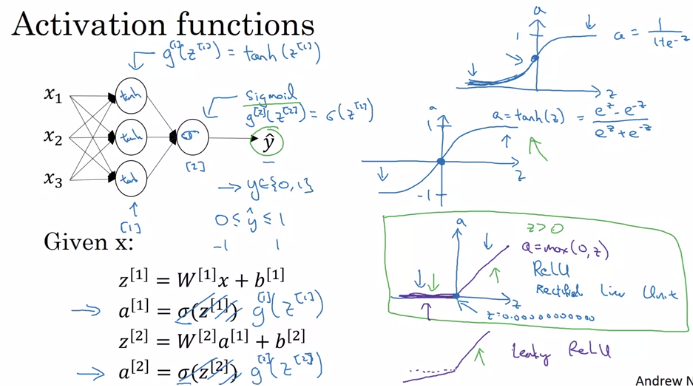 Activation functions
g[1](z[1]) = tanh(z[1])
x1
x2
x3
tanh
tanh
tanh
[1]
σ
[2]
sigmoid
g[2](z[2]) = σ(z[2])
ŷ
→ y∈{0,1}
0 ≤ ŷ ≤ 1
-1 1
Given x:
z[1] = W[1]x + b[1]
→ a[1] = σ(z[1]) g[1](z[1])
z[2] = W[2]a[1] + b[2]
→ a[2] = σ(z[2]) g[2](z[2])
a
1
z
a = 1/(1+e^-z)
a
1
-1
z
a = tanh(z) = (e^z - e^-z)/(e^z + e^-z)
a
z
z>0
a = max(0,z)
ReLU
Rectified Linear Unit
Leaky ReLU
Andrew N